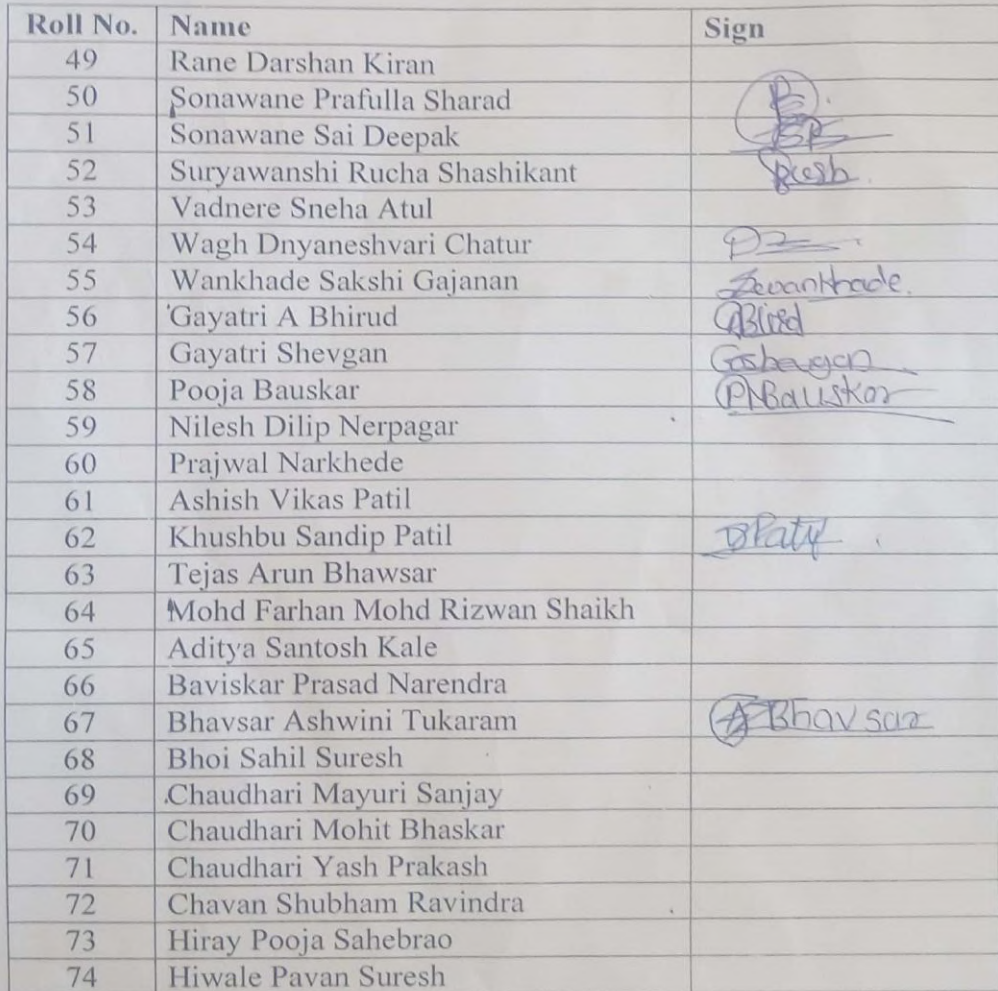 Roll No. Name Sign
49 Rane Darshan Kiran
50 Sonawane Prafulla Sharad
51 Sonawane Sai Deepak
52 Suryawanshi Rucha Shashikant
53 Vadnere Sneha Atul
54 Wagh Dnyaneshvari Chatur
55 Wankhade Sakshi Gajanan
56 Gayatri A Bhirud
57 Gayatri Shevgan
58 Pooja Bauskar PNBauskar
59 Nilesh Dilip Nerpagar
60 Prajwal Narkhede
61 Ashish Vikas Patil
62 Khushbu Sandip Patil
63 Tejas Arun Bhawsar
64 Mohd Farhan Mohd Rizwan Shaikh
65 Aditya Santosh Kale
66 Baviskar Prasad Narendra
67 Bhavsar Ashwini Tukaram A Bhavsar
68 Bhoi Sahil Suresh
69 Chaudhari Mayuri Sanjay
70 Chaudhari Mohit Bhaskar
71 Chaudhari Yash Prakash
72 Chavan Shubham Ravindra
73 Hiray Pooja Sahebrao
74 Hiwale Pavan Suresh